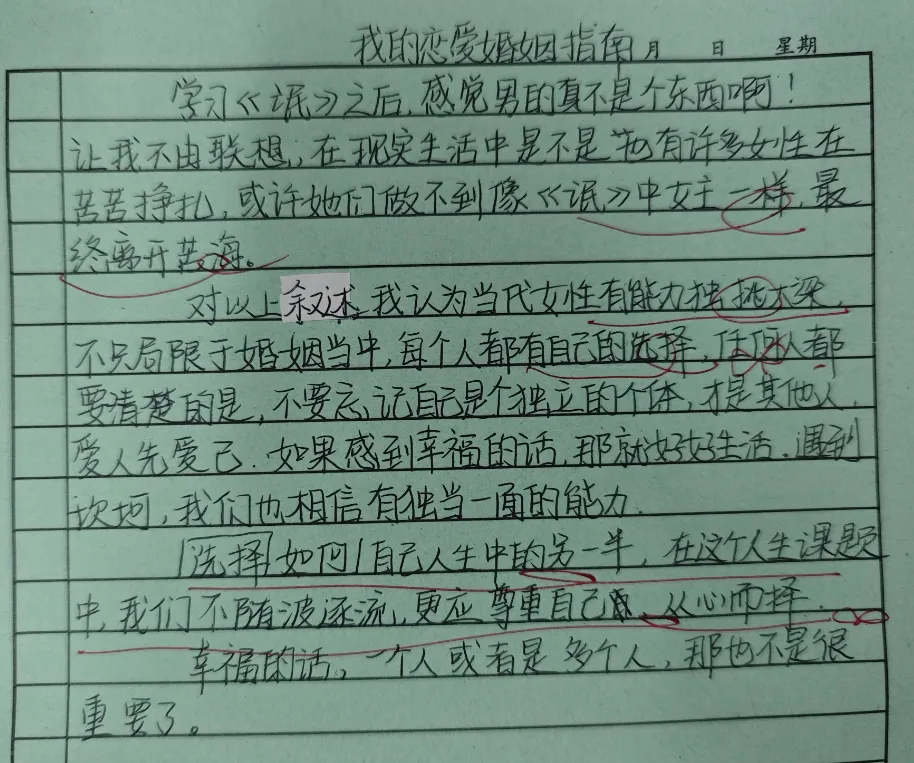 我的恋爱婚姻指南 月 日 星期
学习《氓》之后，感觉男的真不是个东西啊！
让我不由联想，在现实生活中是不是也有许多女性在
苦苦挣扎，或许她们做不到像《氓》中女主一样，最
终离开苦海。
对以上叙述，我认为当代女性有能力独挑大梁，
不只局限于婚姻当中，每个人都有自己的选择，任何人都
要清楚的是，不要忘记自己是个独立的个体，才是其他人，
爱人先爱己．如果感到幸福的话，那就好好生活．遇到
坎坷，我们也相信有独当一面的能力．
选择如何自己人生中的另一半，在这个人生课题
中，我们不随波逐流，更应尊重自己，从心而择．
幸福的话，一个人或者是多个人，那也不是很
重要了。